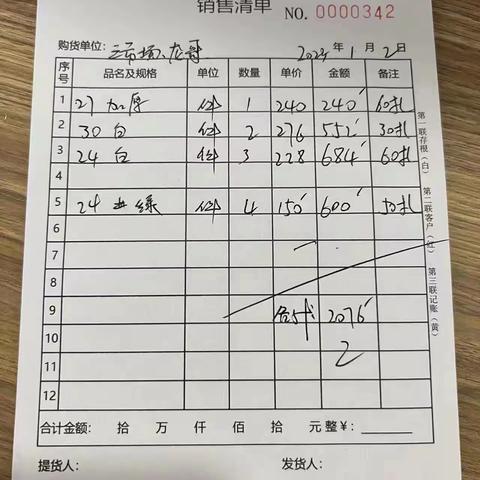 销售清单 NO. 0000342
购货单位: 市场、龙哥 2023年1月2日
序号 品名及规格 单位 数量 单价 金额 备注
1 27加厚 件 1 240 240 60扎
2 30白 件 2 276 552 30扎
3 24白 件 3 228 684 60扎
4
5 24 绿 件 4 150 600 50扎
6
7
8
9 合计 2076
10 2
11
12
合计金额: 拾 万 仟 佰 拾 元整¥:
提货人: 发货人:
第一联存根(白) 第二联客户(红) 第三联记账(黄)